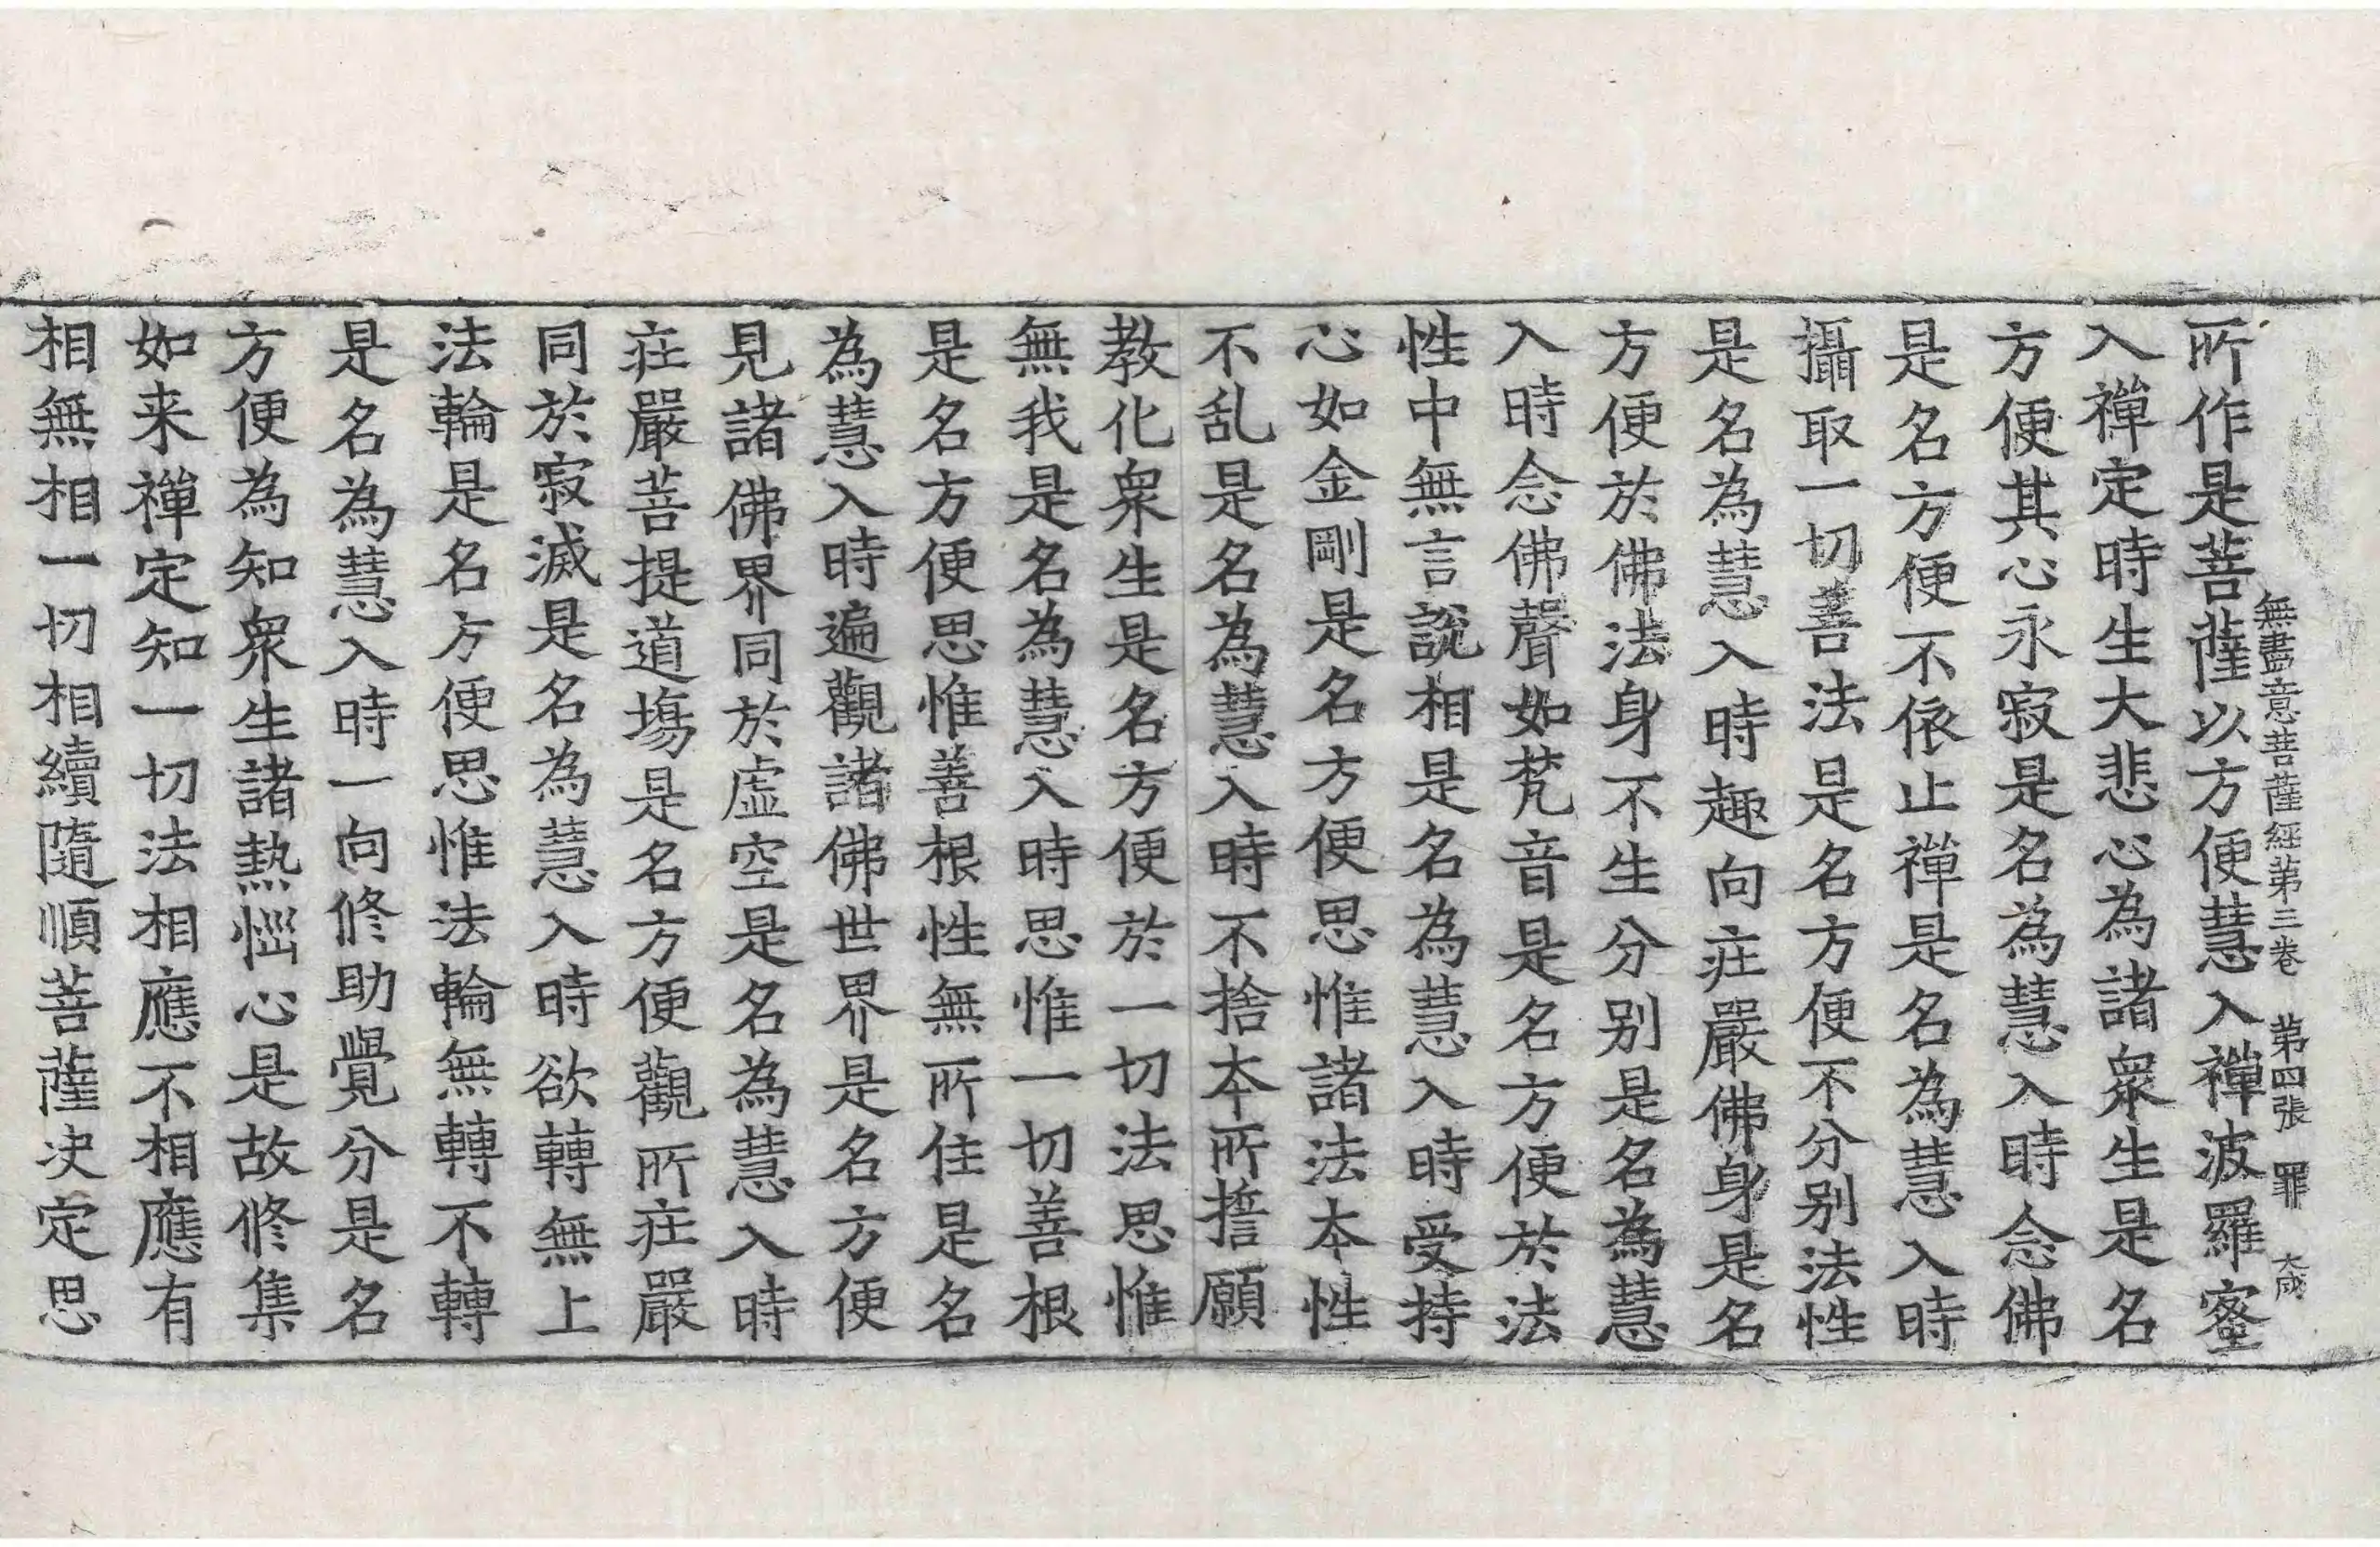 無盡意菩薩經第三卷 第四張 罪 大成
所作是菩薩以方便慧入禪波羅蜜
入禪定時生大悲心為諸衆生是名
方便其心永寂是名為慧入時念佛
是名方便不依止禪是名為慧入時
攝取一切善法是名方便不分别法性
是名為慧入時趣向莊嚴佛身是名
方便於佛法身不生分别是名為慧
入時念佛聲如梵音是名方便於法
性中無言說相是名為慧入時受持
心如金剛是名方便思惟諸法本性
不乱是名為慧入時不捨本所誓願
教化衆生是名方便於一切法思惟
無我是名為慧入時思惟一切善根
是名方便思惟善根性無所住是名
為慧入時遍觀諸佛世界是名方便
見諸佛界同於虛空是名為慧入時
莊嚴菩提道場是名方便觀所莊嚴
同於寂滅是名為慧入時欲轉無上
法輪是名方便思惟法輪無轉不轉
是名為慧入時一向修助覺分是名
方便為知衆生諸熱惱心是故修集
如来禪定知一切法相應不相應有
相無相一切相續隨順菩薩决定思